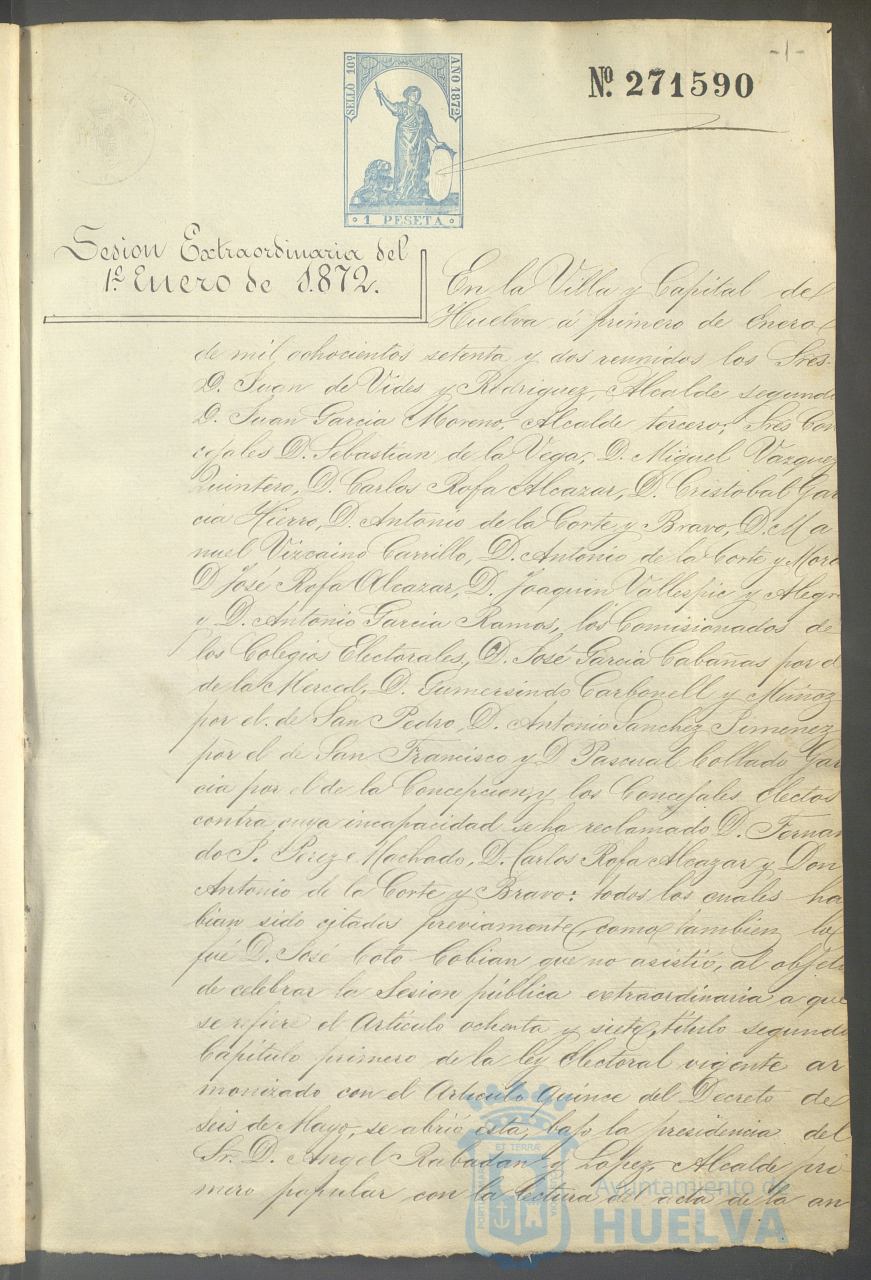 -1-
Nº. 271590
SELLO 10º
AÑO 1872
1 PESETA
Sesion Extraordinaria del
1º Enero de 1.872.
En la Villa y Capital de
Huelva á primero de Enero
de mil ochocientos setenta y dos reunidos los Sres.
D. Juan de Vides y Rodriguez, Alcalde segundo
D. Juan Garcia Moreno, Alcalde tercero; Sres Con
cejales D. Sebastian de la Vega, D. Miguel Vazquez
Quintero, D. Carlos Rofa Alcazar, D. Cristobal Gar
cia Hierro, D. Antonio de la Corte y Bravo, D. Ma
nuel Vizcaino Carrillo, D. Antonio de la Corte y Mora
D José Rofa Alcazar, D. Joaquin Vallespic y Alegr
y D. Antonio Garcia Ramos, los Comisionados de
los Colegios Electorales, D. José Garcia Cabañas por el
de la Merced, D. Gumersindo Carbonell y Muñoz
por el de San Pedro, D. Antonio Sanchez Jimenez
por el de San Francisco y D Pascual Collado Gar
cia por el de la Concepcion, y los Concejales electos
contra cuya incapacidad se ha reclamado D. Fernan
do P. Perez Machado, D. Carlos Rofa Alcazar y Don
Antonio de la Corte y Bravo: todos los cuales ha
bian sido citados previamente, como tambien lo
fué D. José Coto Cobian que no asistió, al objeto
de celebrar la Sesion pública extraordinaria a que
se refiere el Artículo ochenta y siete, título segundo
Capitulo primero de la ley electoral vigente ar
monizado con el Artículo quince del Decreto de
seis de Mayo, se abrió esta, bajo la presidencia del
Sr. D. Angel Rabadan y Lopez, Alcalde pri
mero popular con la lectura del acta de la an
ET TERRÆ
Ayuntamiento de
HUELVA